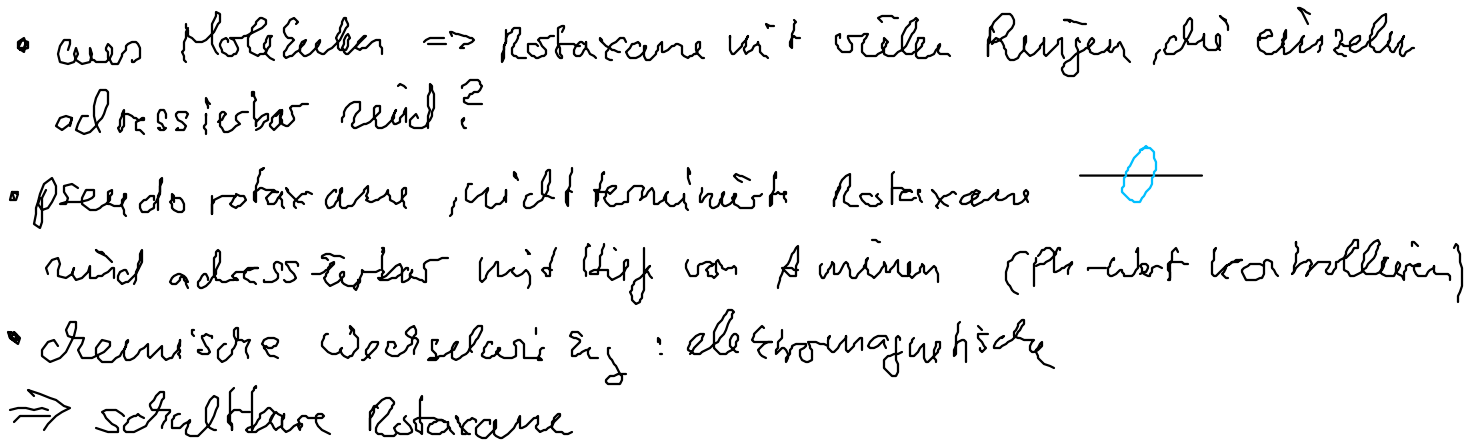 • aus Molekülen => Rotaxane mit vielen Ringen, die einzeln
adressierbar sind?
• pseudorotaxane, nicht terminierte Rotaxane
sind adressierbar mit Hilf von Aminen (Ph-Wert kontrollieren)
• chemische Wechselwirkg : elektromagnetische
=> schaltbare Rotaxane